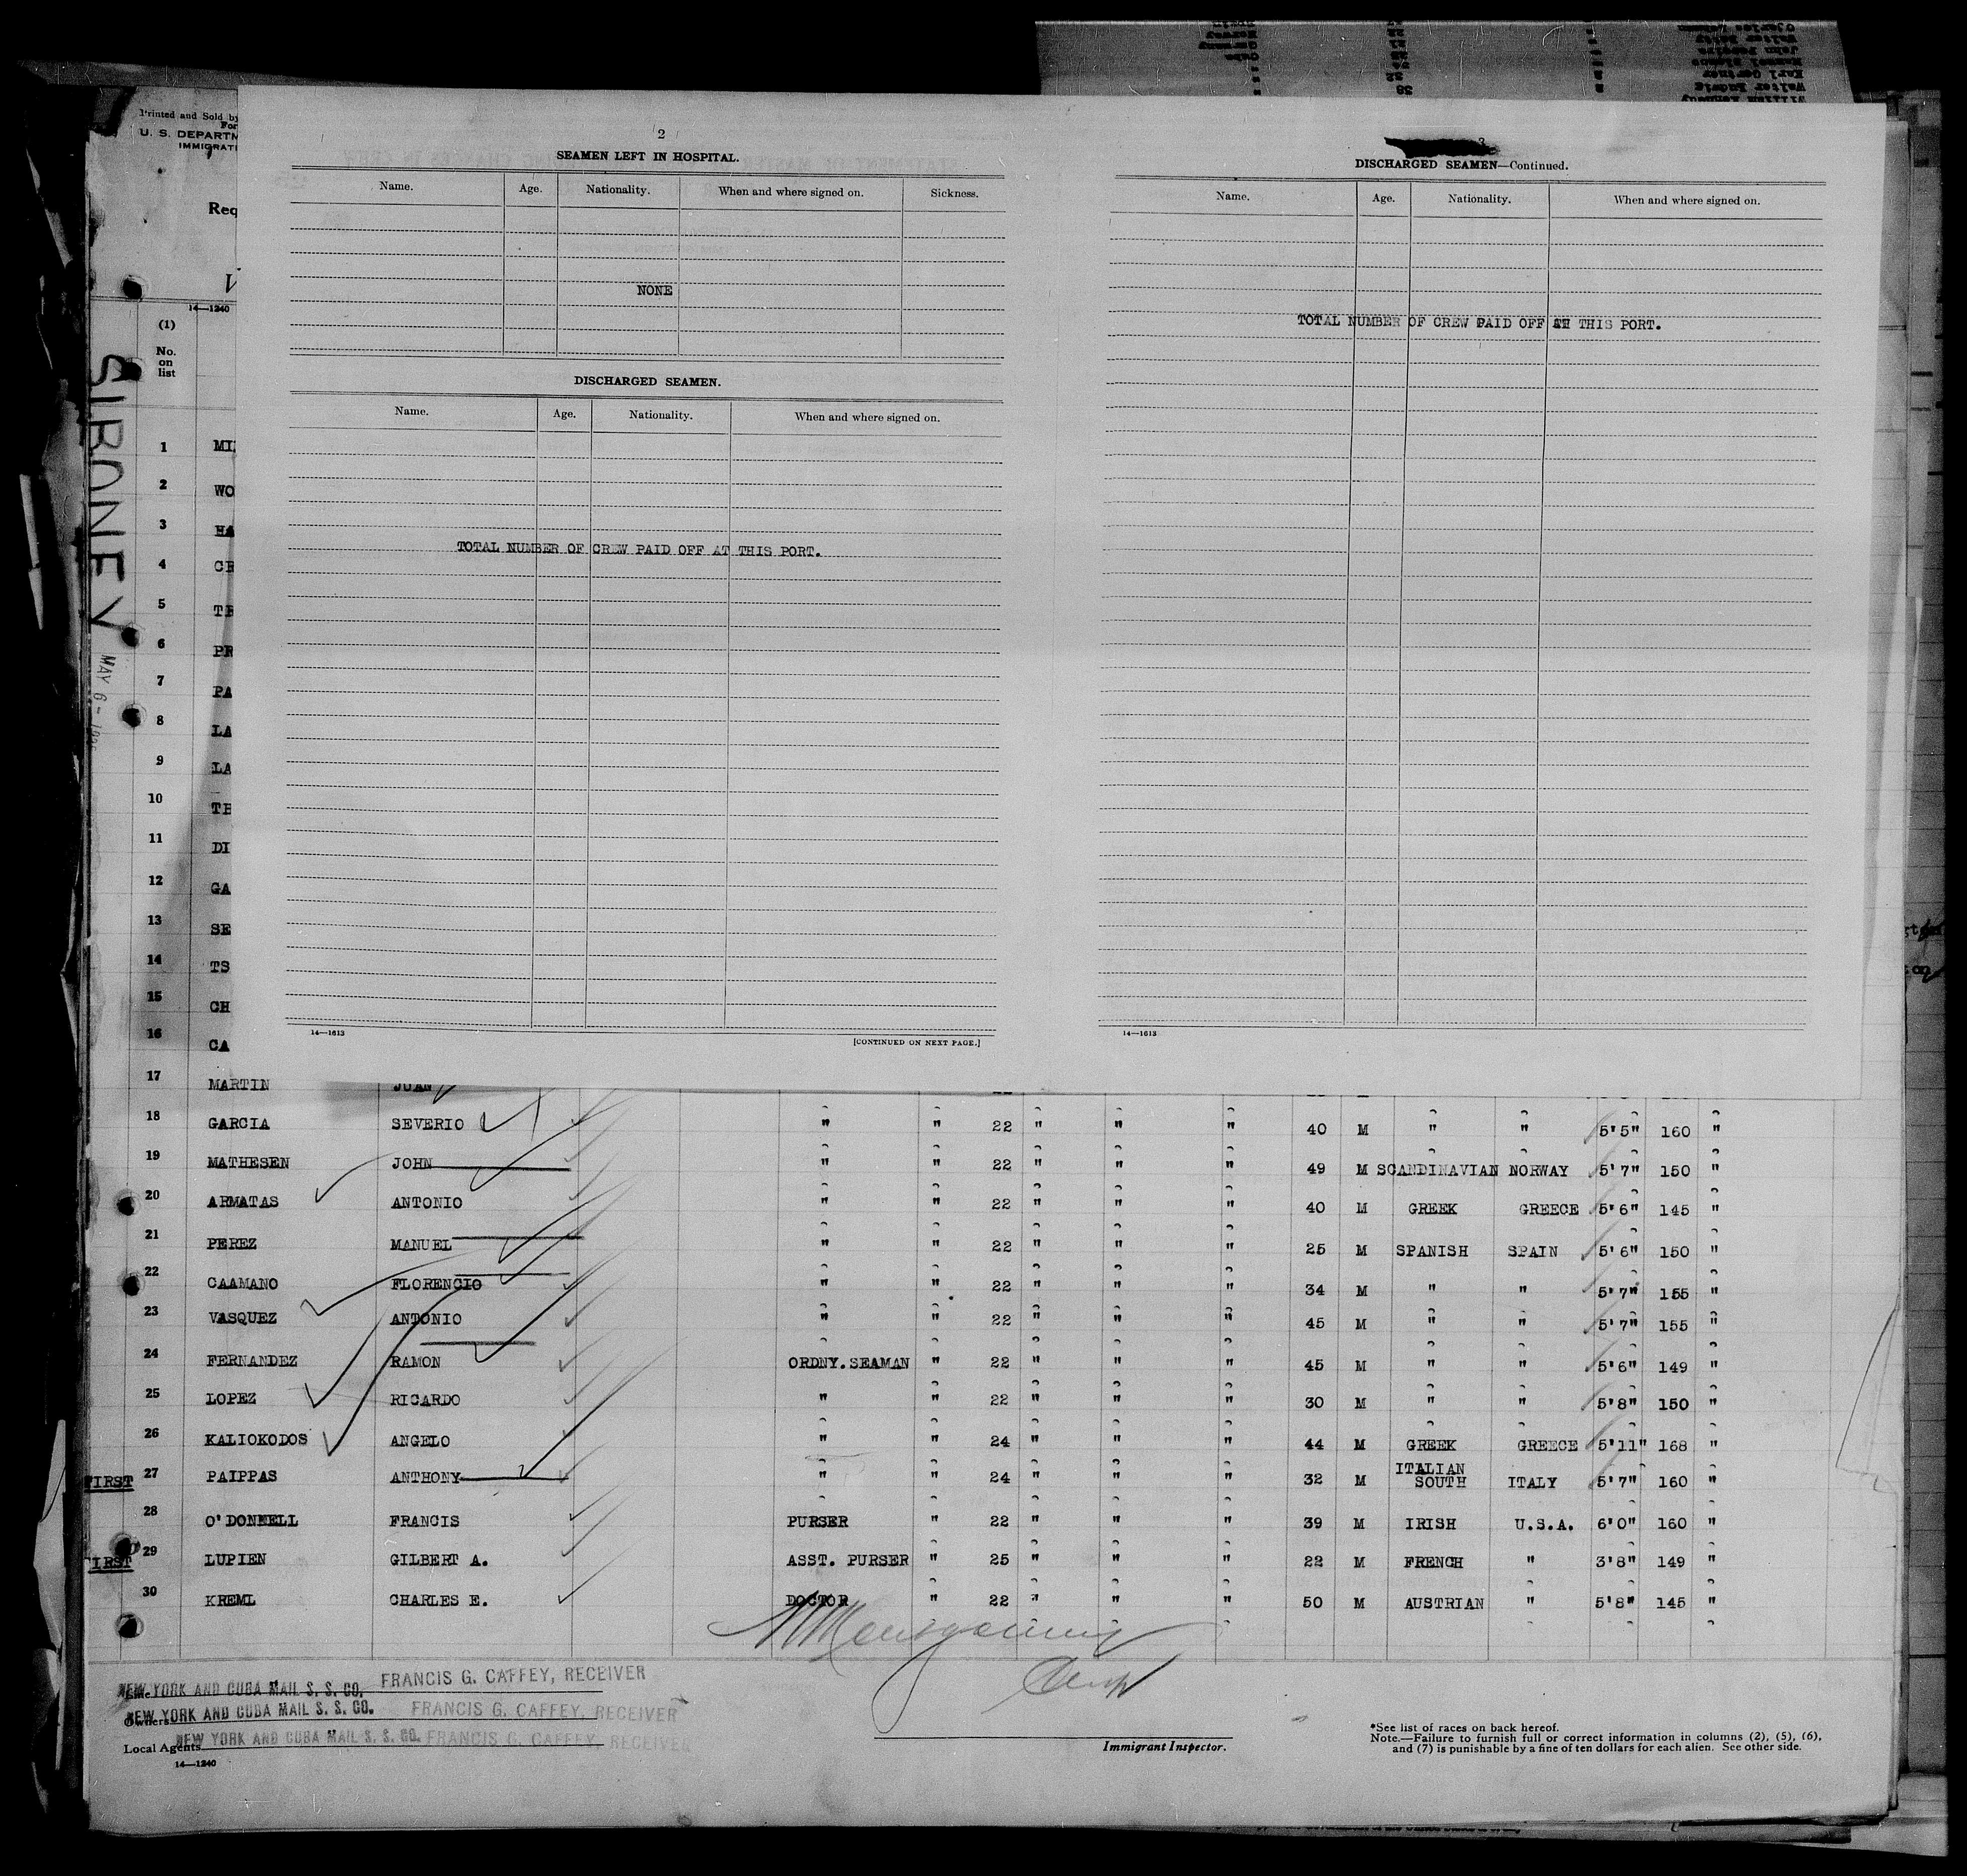 Printed and Sold by
U. S. DEPARTM
IMMIGRATI
Req
14—1240
(1)
No.
on
list
SIBONEY
MAY 6 -
2
SEAMEN LEFT IN HOSPITAL.
Name. Age. Nationality. When and where signed on. Sickness.
NONE
DISCHARGED SEAMEN.
Name. Age. Nationality. When and where signed on.
TOTAL NUMBER OF CREW PAID OFF AT THIS PORT.
14—1613
[CONTINUED ON NEXT PAGE.]
3
DISCHARGED SEAMEN—Continued.
Name. Age. Nationality. When and where signed on.
TOTAL NUMBER OF CREW PAID OFF AT THIS PORT.
14—1613
1 MI
2 WO
3 HA
4 CR
5 TE
6 PR
7 PA
8 LA
9 LA
10 TE
11 DI
12 GA
13 SE
14 TS
15 CH
16 CA
17 MARTIN JUAN
18 GARCIA SEVERIO " " 22 " " " 40 M " " 5'5" 160 "
19 MATHESEN JOHN " " 22 " " " 49 M SCANDINAVIAN NORWAY 5'7" 150 "
20 ARMATAS ANTONIO " " 22 " " " 40 M GREEK GREECE 5'6" 145 "
21 PEREZ MANUEL " " 22 " " " 25 M SPANISH SPAIN 5'6" 150 "
22 CAAMANO FLORENCIO " " 22 " " " 34 M " " 5'7" 155 "
23 VASQUEZ ANTONIO " " 22 " " " 45 M " " 5'7" 155 "
24 FERNANDEZ RAMON ORDNY.SEAMAN " 22 " " " 45 M " " 5'6" 149 "
25 LOPEZ RICARDO " " 22 " " " 30 M " " 5'8" 150 "
26 KALIOKODOS ANGELO " " 24 " " " 44 M GREEK GREECE 5'11" 168 "
FIRST 27 PAIPPAS ANTHONY " " 24 " " " 32 M ITALIAN SOUTH ITALY 5'7" 160 "
28 O'DONNELL FRANCIS PURSER " 22 " " " 39 M IRISH U.S.A. 6'0" 160 "
FIRST 29 LUPIEN GILBERT A. ASST. PURSER " 25 " " " 22 M FRENCH " 3'8" 149 "
30 KREML CHARLES E. DOCTOR " 22 " " " 50 M AUSTRIAN " 5'8" 145 "
Line NEW YORK AND CUBA MAIL S. S. CO. FRANCIS G. CAFFEY, RECEIVER
Owners NEW YORK AND CUBA MAIL S. S. CO. FRANCIS G. CAFFEY, RECEIVER
Local Agents NEW YORK AND CUBA MAIL S. S. CO. FRANCIS G. CAFFEY, RECEIVER
14—1240
Immigrant Inspector.
*See list of races on back hereof.
Note.—Failure to furnish full or correct information in columns (2), (5), (6),
and (7) is punishable by a fine of ten dollars for each alien. See other side.